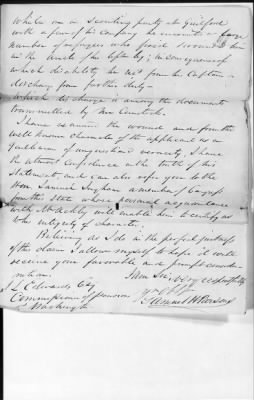 While on a Scouting party at Guilford
with a few of his Company he encounter a large
number of refugees who fired & wound him
in the Ancle of his left leg; in consequence of
which disability he rec'd from his Captain a
discharge from further duty—
which discharge is among the documents
transmitted by Mr Comstock.
I have examined the wound and from the
well known character of the applicant as a
gentleman of unquestioned veracity, I have
the utmost confidence in the truth of his
Statement, and can also refer you to the
Hon Samuel Ingham a member of Congress
from this State whose personal acquaintance
with Mr will enable him to certify as
to his integrity of character.
Believing as I do in the perfect justness
of the claim I allow myself to hope it will
secure your favorable and prompt consider-
ation.
I am Sir very respectfully
Yr Obt
Samuel H Parsons
J L Edwards Esq
Commissioner of Pensions
Washington